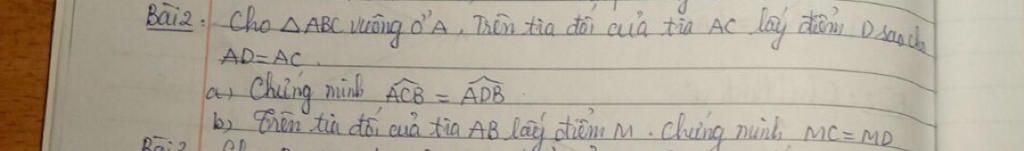 Bài 2: Cho △ABC vuông ở A, Trên tia đối của tia AC lấy điểm D sao cho
AD=AC.
a) Chứng minh \widehat{ACB} = \widehat{ADB}
b) Trên tia đối của tia AB lấy điểm M. Chứng minh MC=MD
Bài 3